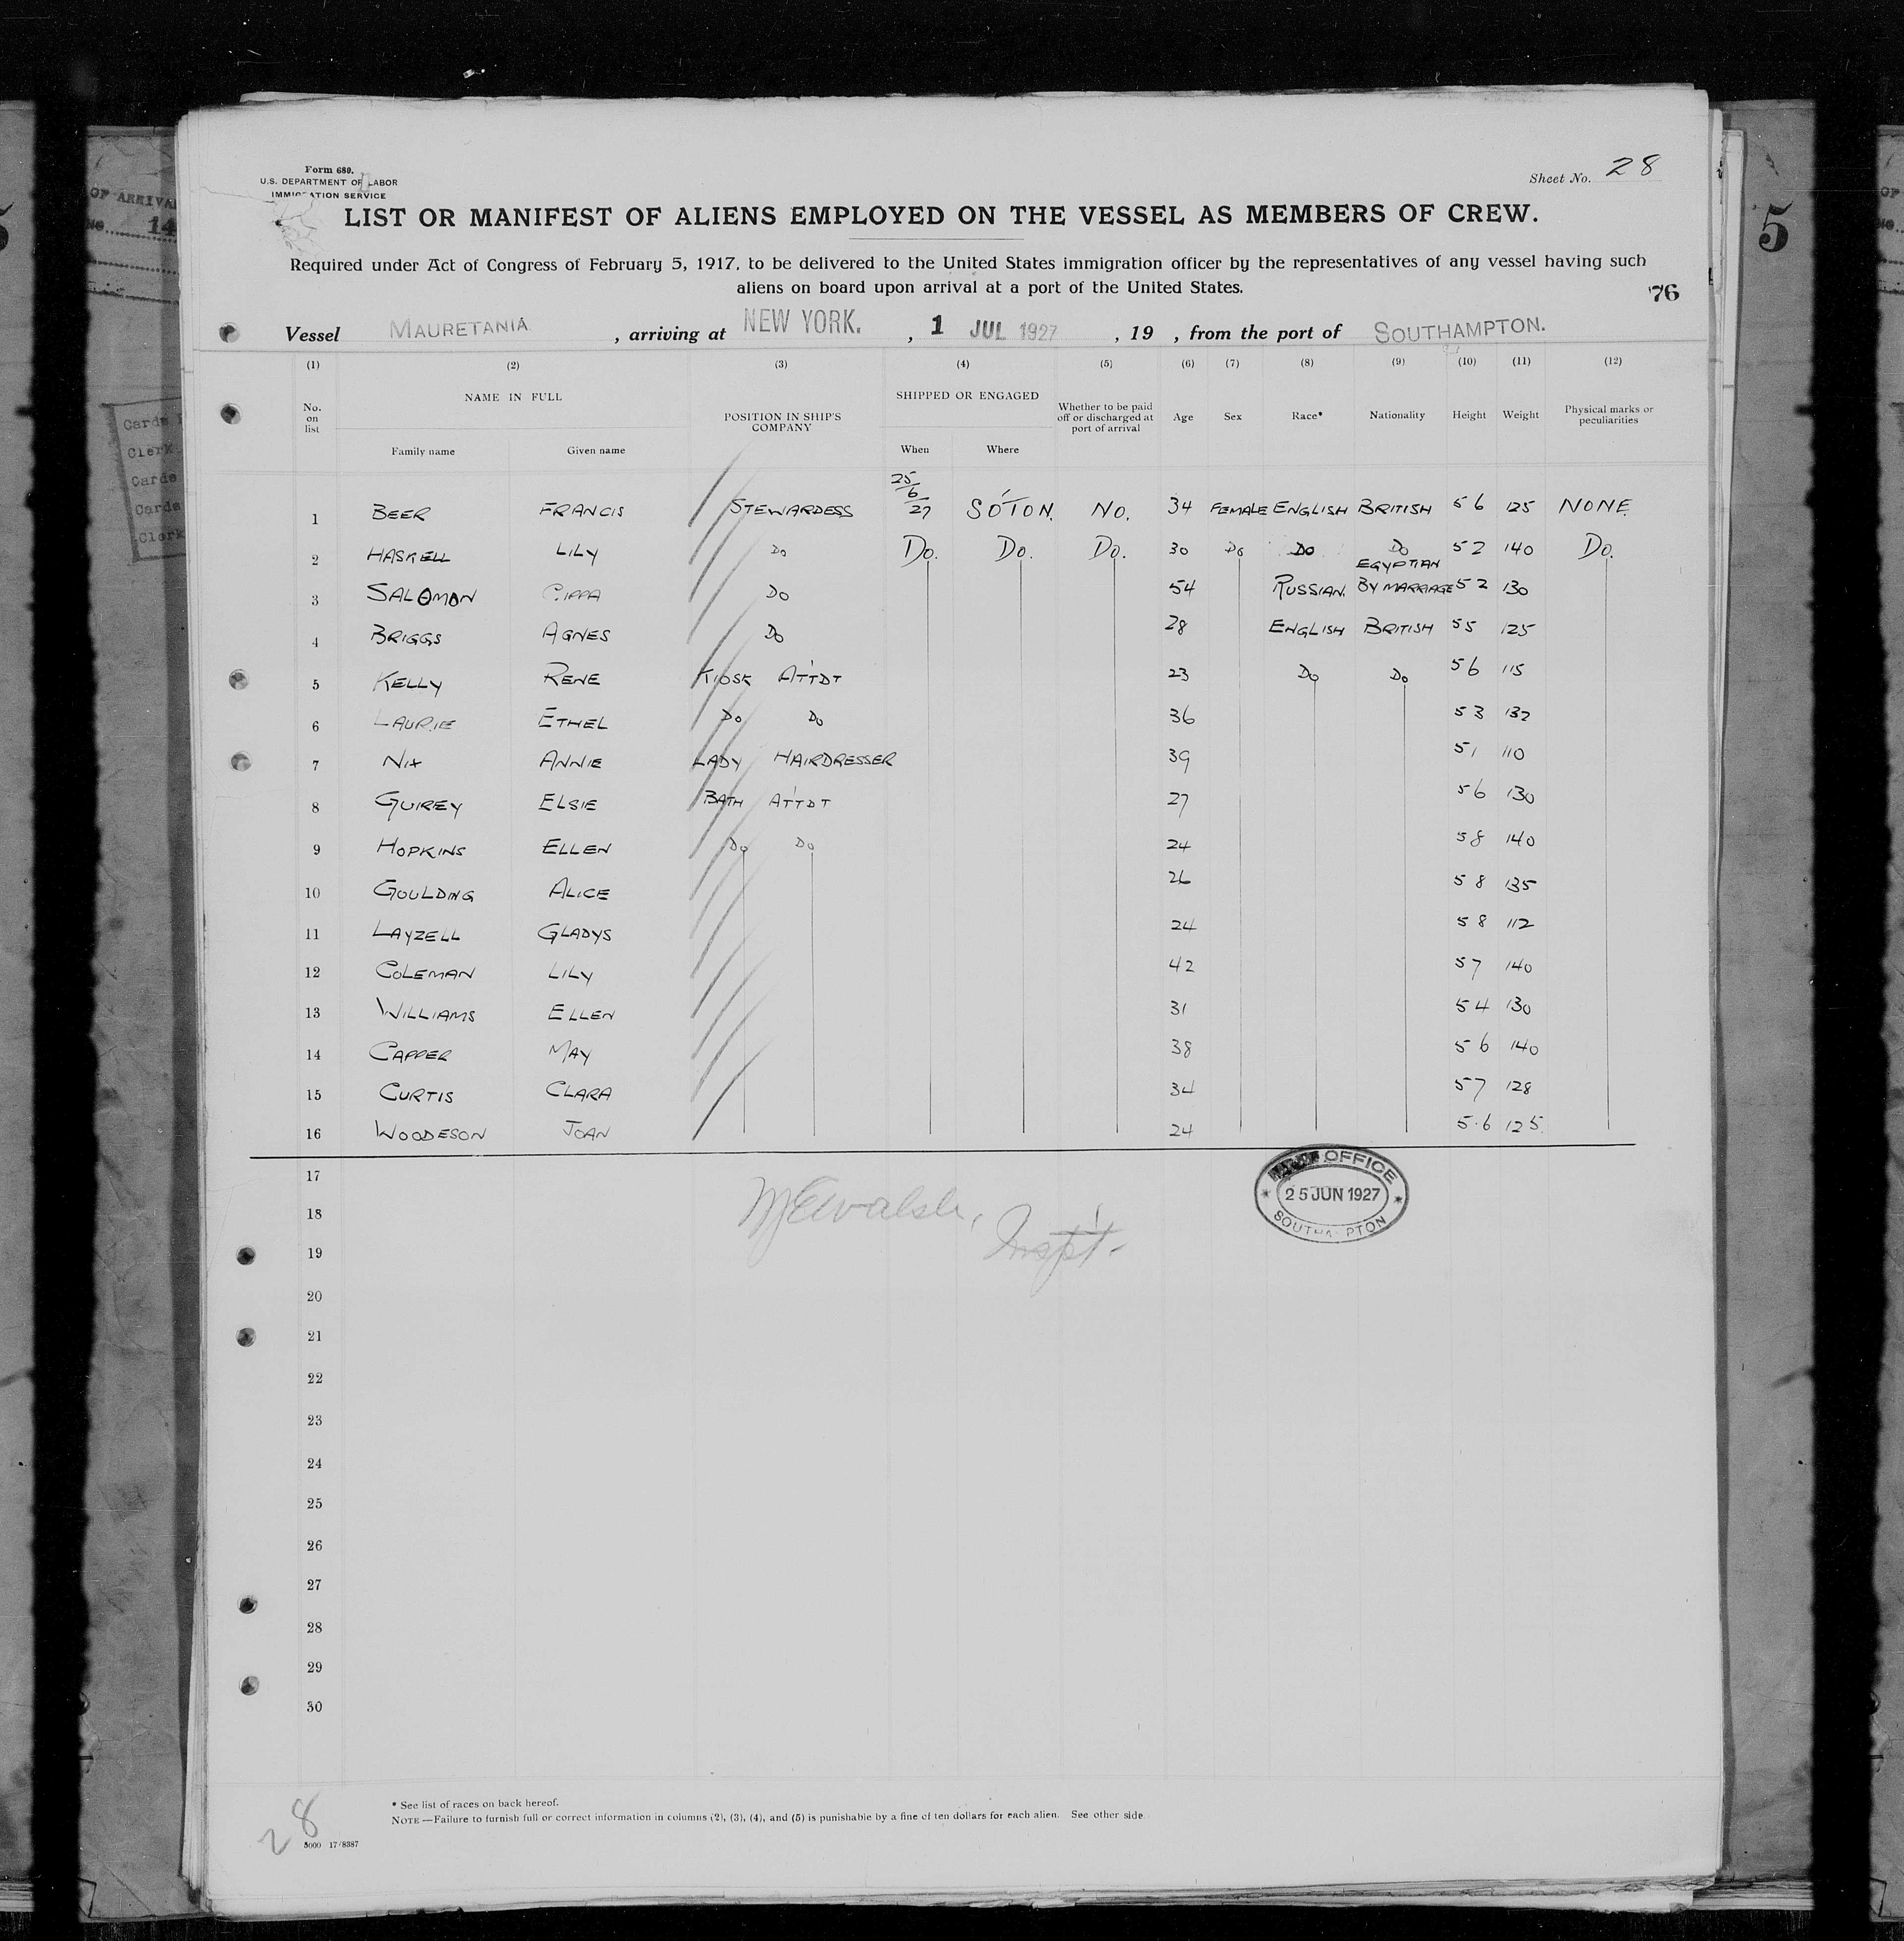 Form 680.
U.S. DEPARTMENT OF LABOR
IMMIGRATION SERVICE
Sheet No. 28
LIST OR MANIFEST OF ALIENS EMPLOYED ON THE VESSEL AS MEMBERS OF CREW.
Required under Act of Congress of February 5, 1917, to be delivered to the United States immigration officer by the representatives of any vessel having such
aliens on board upon arrival at a port of the United States.
76
Vessel MAURETANIA , arriving at NEW YORK. , 1 JUL 1927 , 19 , from the port of SOUTHAMPTON.
(1) (2) (3) (4) (5) (6) (7) (8) (9) (10) (11) (12)
No. on list NAME IN FULL Family name Given name POSITION IN SHIP'S COMPANY SHIPPED OR ENGAGED When Where Whether to be paid off or discharged at port of arrival Age Sex Race* Nationality Height Weight Physical marks or peculiarities
1 BEER FRANCIS STEWARDESS 25/6/27 SO'TON. NO. 34 FEMALE ENGLISH BRITISH 5 6 125 NONE
2 HASKELL LILY DO DO. DO. DO. 30 DO DO DO 5 2 140 DO.
3 SALOMON DO 54 RUSSIAN. EGYPTIAN BY MARRIAGE 5 2 130
4 BRIGGS AGNES DO 28 ENGLISH BRITISH 5 5 125
5 KELLY RENE KIOSK ATT'DT 23 DO DO 5 6 115
6 LAURIE ETHEL DO DO 36 5 3 132
7 NIX ANNIE LADY HAIRDRESSER 39 5 1 110
8 GUIREY ELSIE BATH ATT'DT 27 5 6 130
9 HOPKINS ELLEN DO DO 24 5 8 140
10 GOULDING ALICE 26 5 8 135
11 LAYZELL GLADYS 24 5 8 112
12 COLEMAN LILY 42 5 7 140
13 WILLIAMS ELLEN 31 5 4 130
14 CAPPER MAY 38 5 6 140
15 CURTIS CLARA 34 5 7 128
16 WOODESON JOAN 24 5.6 125.
17
18
19
20
21
22
23
24
25
26
27
28
29
30
Walsh, Insp't.
OFFICE
25 JUN 1927
SOUTHAMPTON
* See list of races on back hereof.
NOTE—Failure to furnish full or correct information in columns (2), (3), (4), and (5) is punishable by a fine of ten dollars for each alien. See other side.
28
5000 17/8387
OF ARRIVAL
No. 14
Cards
Clerk
Cards
Cards
Clerk
5